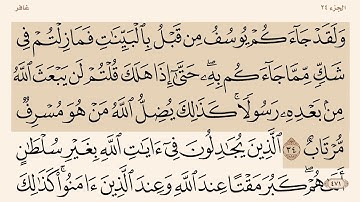 الجزء ٢٤
غافر
وَلَقَدْ جَآءَكُمْ يُوسُفُ مِن قَبْلُ بِٱلْبَيِّنَٰتِ فَمَا زِلْتُمْ فِي
شَكٍّ مِّمَّا جَآءَكُم بِهِۦ ۖ حَتَّىٰٓ إِذَا هَلَكَ قُلْتُمْ لَن يَبْعَثَ ٱللَّهُ
مِنۢ بَعْدِهِۦ رَسُولًا ۚ كَذَٰلِكَ يُضِلُّ ٱللَّهُ مَنْ هُوَ مُسْرِفٌ
مُّرْتَابٌ ٣٤ ٱلَّذِينَ يُجَٰدِلُونَ فِيٓ ءَايَٰتِ ٱللَّهِ بِغَيْرِ سُلْطَٰنٍ
أَتَىٰهُمْ ۖ كَبُرَ مَقْتًا عِندَ ٱللَّهِ وَعِندَ ٱلَّذِينَ ءَامَنُوا۟ ۚ كَذَٰلِكَ
٤٧١